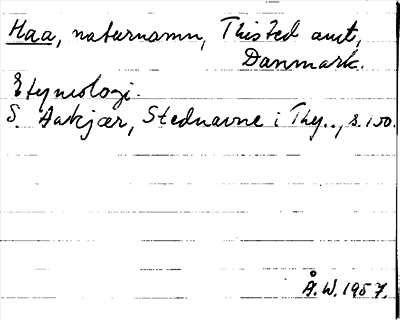 Haa, naturnamn, Thisted amt,
Danmark.
Etymologi.
S. Aakjær, Stednavne i Thy.., s. 150.
Å. W. 1957.